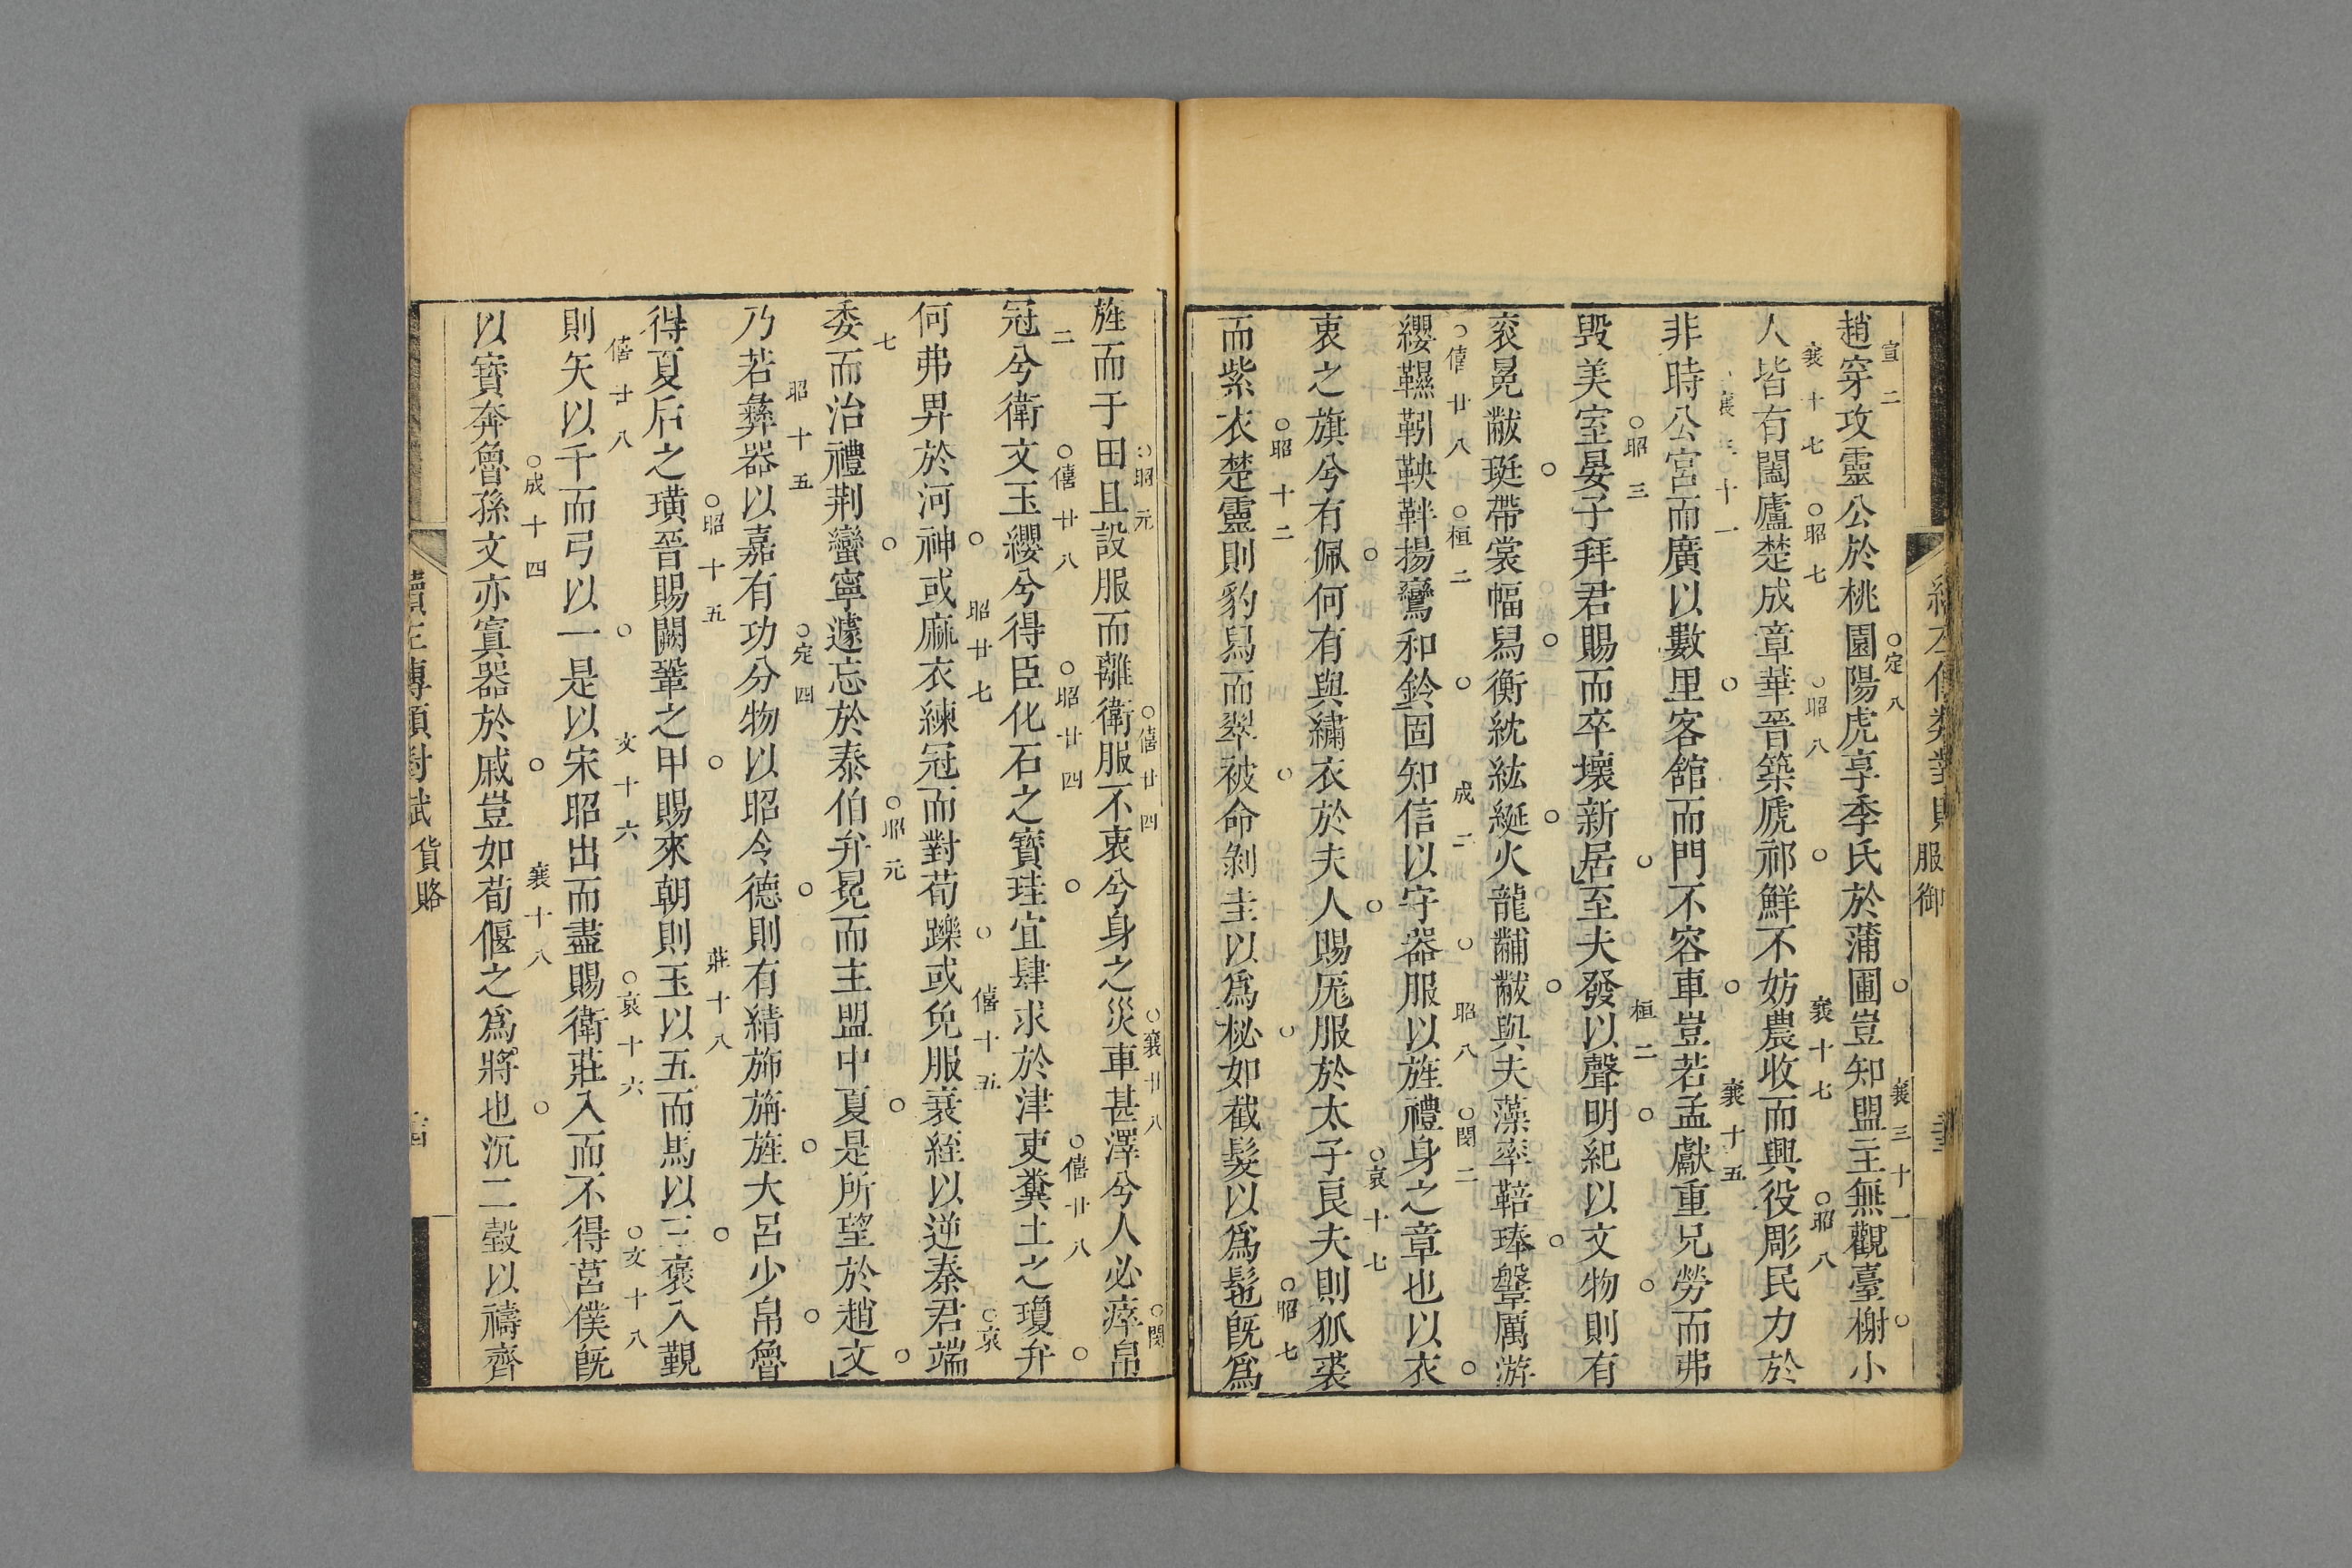 服御
趙穿攻靈公於桃園陽虎享季氏於蒲圃豈知盟主無觀臺榭小
宣二 定八 襄三十一
人皆有闔廬楚成章華晉築虒祁鮮不妨農收而興役彫民力於
襄十七 昭七 昭八 襄十七 昭八
非時公宮而廣以數里客舘而門不容車豈若孟獻重兄勞而弗
襄三十一 襄十五
毀美室晏子拜君賜而卒壞新居至夫發以聲明紀以文物則有
昭三 桓二
衮冕黻珽帶裳幅舄衡紞紘綖火龍黼黻與夫藻率鞞琫鞶厲游
纓韅靷鞅靽揚鸞和鈴固知信以守器服以旌禮身之章也以衣
僖廿八 桓二 成二 昭八 閔二
衷之旗兮有佩何有與繡衣於夫人賜厖服於太子良夫則狐裘
哀十七
而紫衣楚靈則豹舄而翠被命剝圭以爲柲如截髮以爲髢旣爲
昭十二 昭七
旌而于田且設服而離衛服不衷兮身之災車甚澤兮人必瘁帛
昭元 僖廿四 襄廿八 閔
冠兮衛文玉纓兮得臣化石之寶珪宜肆求於津吏糞土之瓊弁
二 僖廿八 昭廿四 僖廿八
何弗畀於河神或麻衣練冠而對荀躒或免服衰絰以逆秦君端
昭廿七 僖十五 哀
委而治禮荆蠻寧遽忘於泰伯弁冕而主盟中夏是所望於趙文
七 昭元
乃若彝器以嘉有功分物以昭令德則有綪斾旃旌大呂少帛魯
昭十五 定四
得夏后之璜晉賜闕鞏之甲賜來朝則玉以五而馬以三褒入覲
昭十五 莊十八
則矢以千而弓以一是以宋昭出而盡賜衛莊入而不得莒僕旣
僖廿八 文十六 哀十六 文十八
以寶奔魯孫文亦寘器於戚豈如荀偃之爲將也沉二瑴以禱齊
成十四 襄十八
貨賂